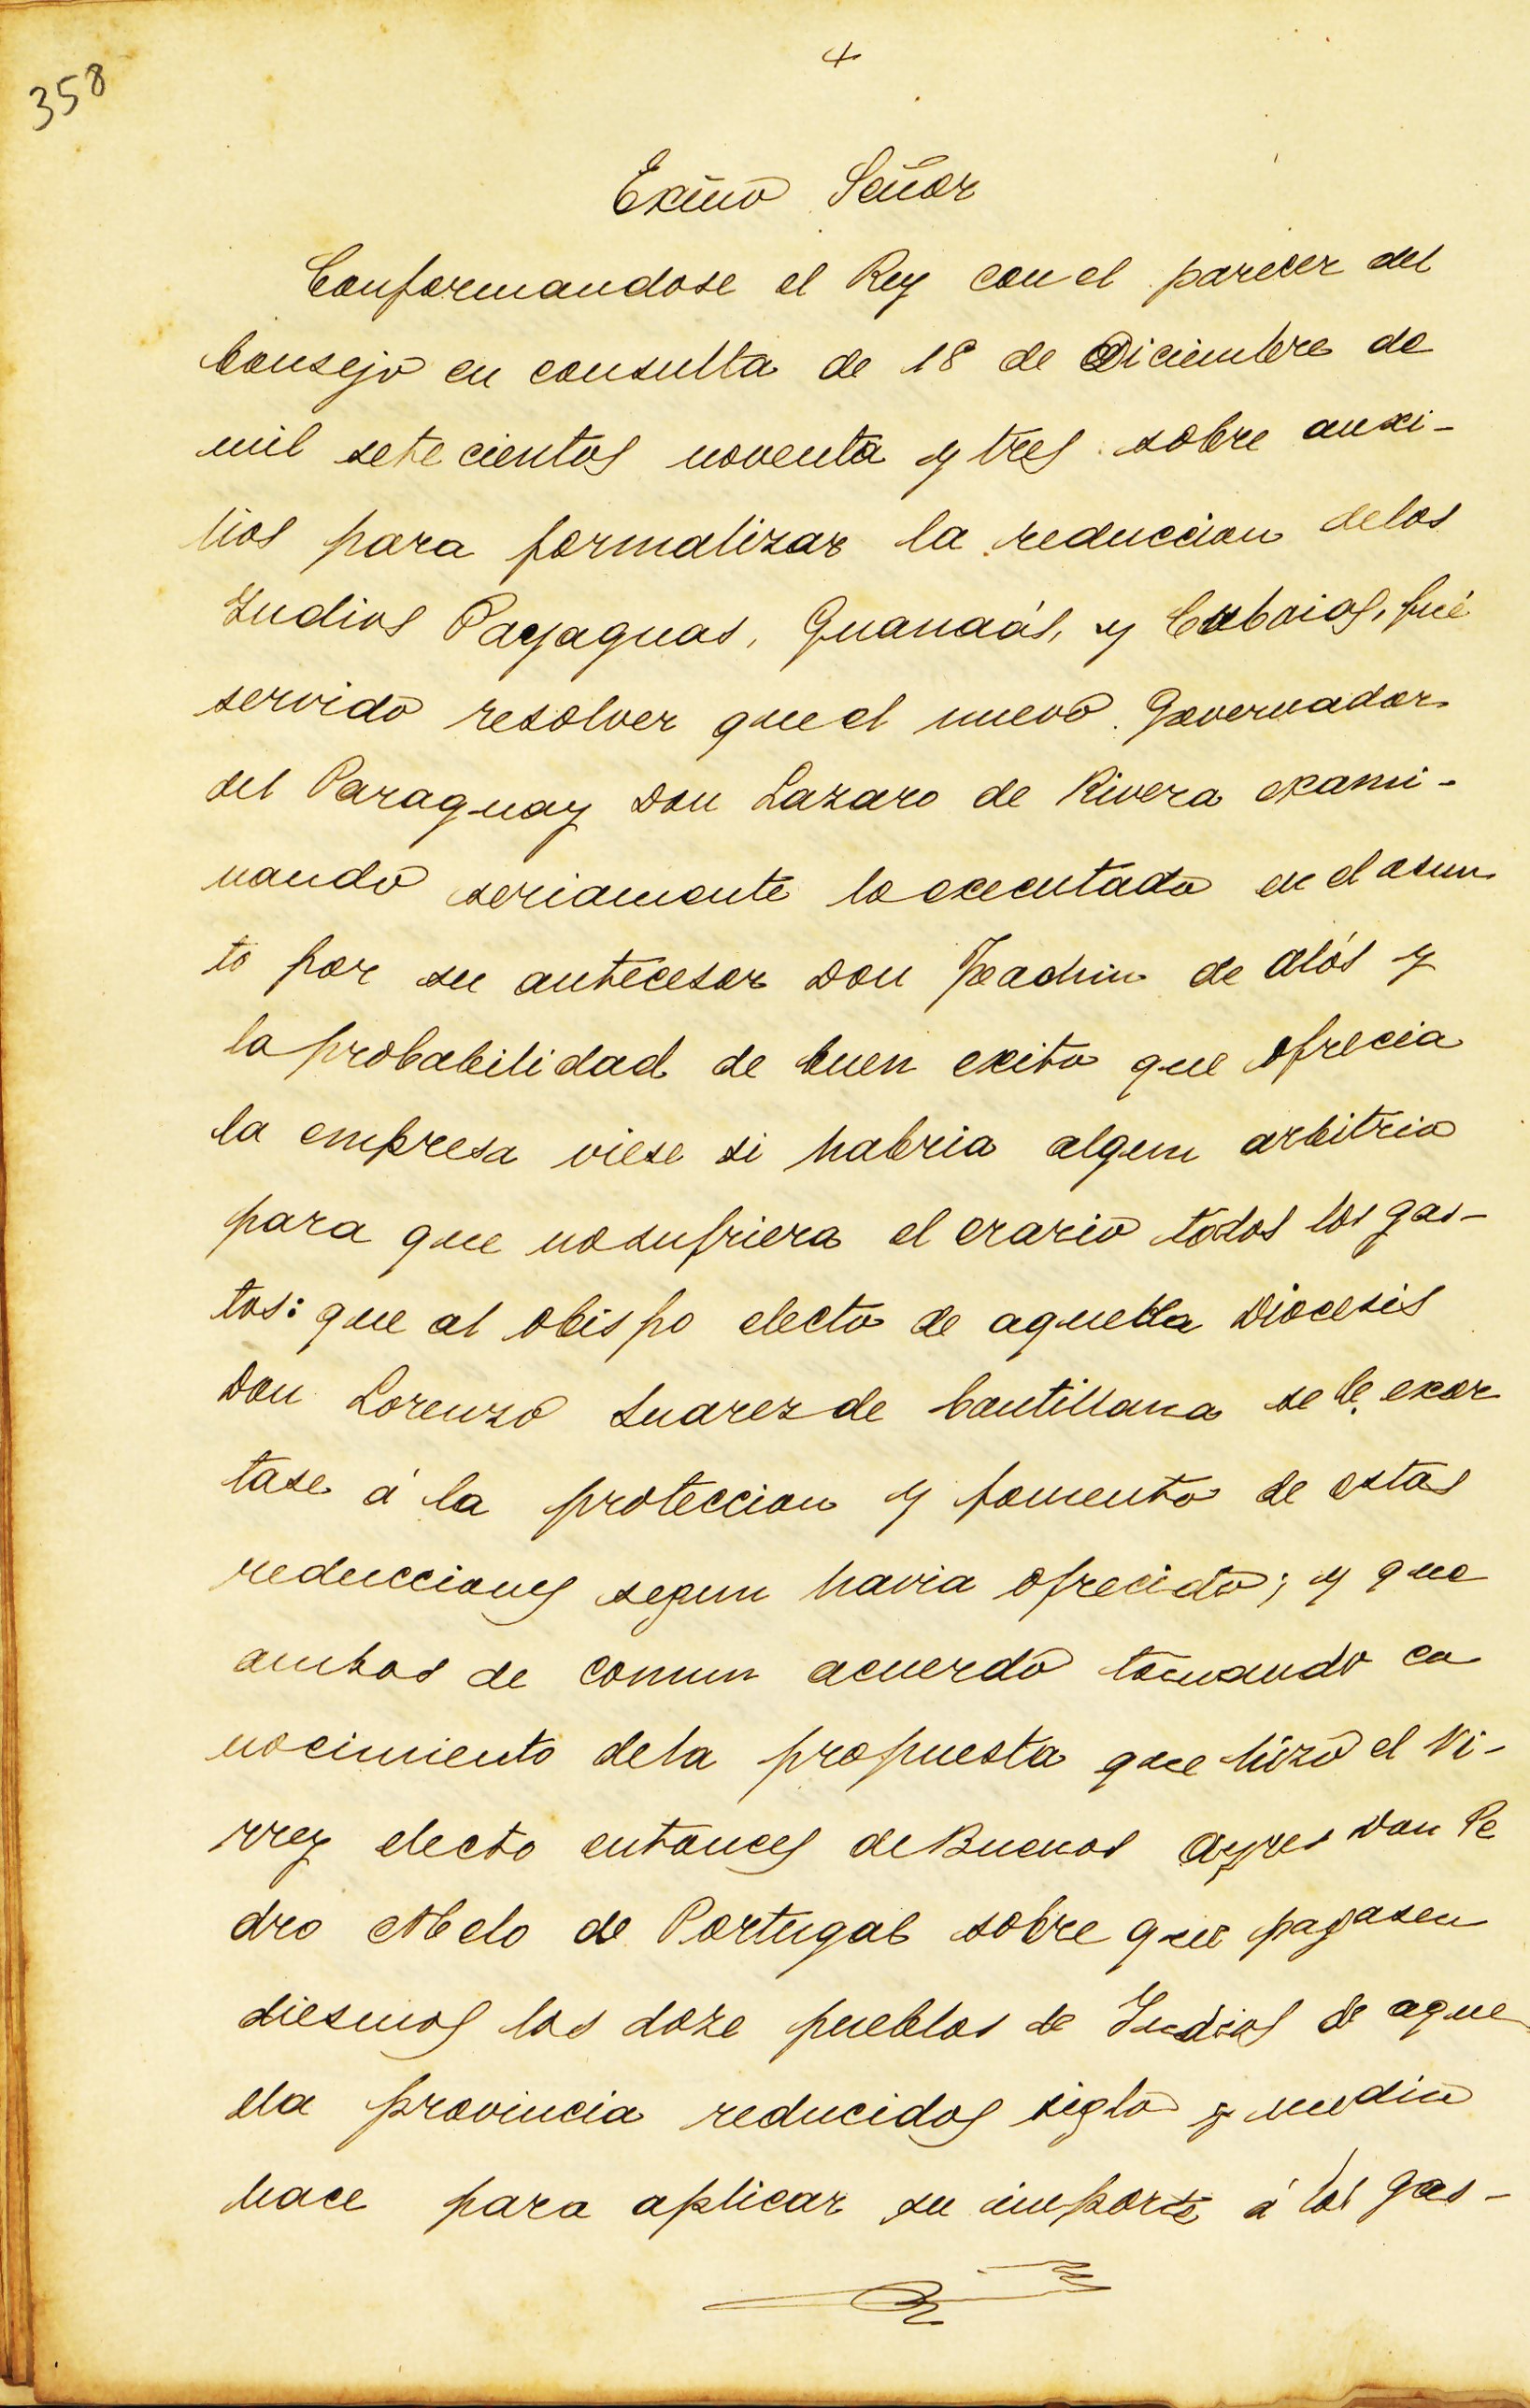 358
Exmo Señor
Conformandose el Rey con el parecer del
Consejo en consulta de 18 de Diciembre de
mil sete cientos noventa y tres sobre auxi-
lios para formalizar la reduccion delos
Indios Payaguas, Guanaás, y Cubaios, fué
servido resolver que el nuevo Governador
del Paraguay Don Lazaro de Rivera exami-
nando seriamente lo executado en el asun
to por su antecesor Don Joachin de Alós y
la probabilidad de buen exito que ofrecia
la empresa viese si habria algun arbitrio
para que no sufriera el erario todos los gas-
tos: que al obispo electo de aquella Diocesis
Don Lorenzo Suarez de Cantillana se le exor
tase á la proteccion y fomento de estas
reducciones segun havia ofrecido; y que
ambos de comun acuerdo tomando co
nocimiento dela propuesta que hizo el Vi-
rrey electo entonces de Buenos Ayres Don Pe
dro Melo de Portugal sobre que pagasen
diesmos los doze pueblos de Indios de aque
lla provincia reducidos siglo y medio
hace para aplicar su importe á los gas-